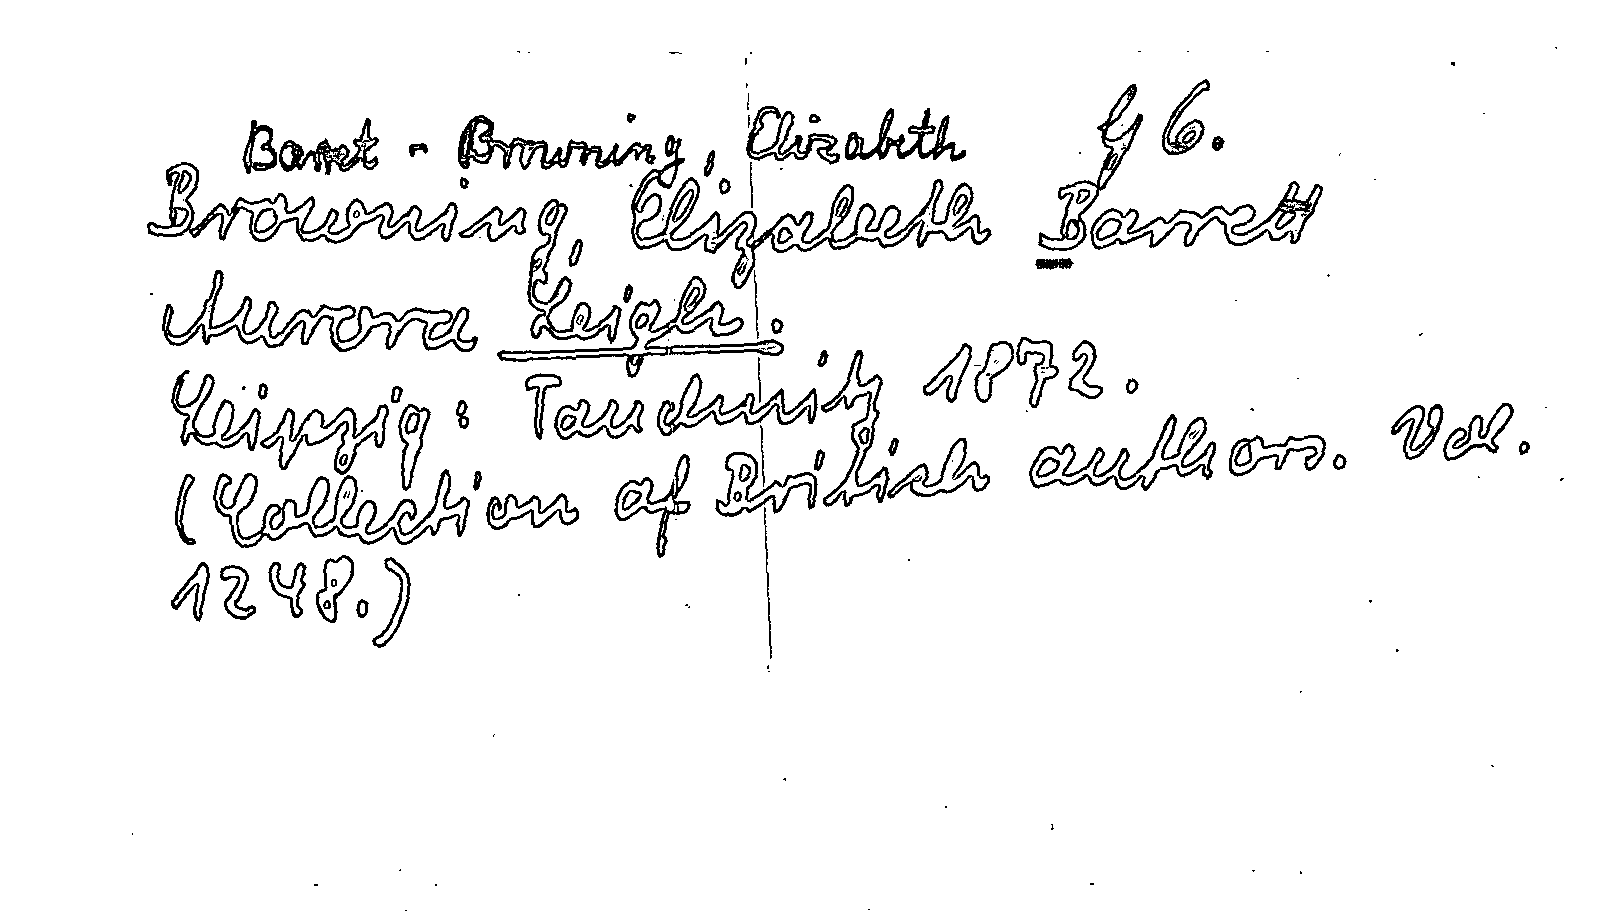 Barret - Browning, Elizabeth G 6.
Browning, Elizabeth Barrett
Aurora Leigh.
Leipzig: Tauchnitz 1872.
(Collection of British authors. Vol.
1248.)